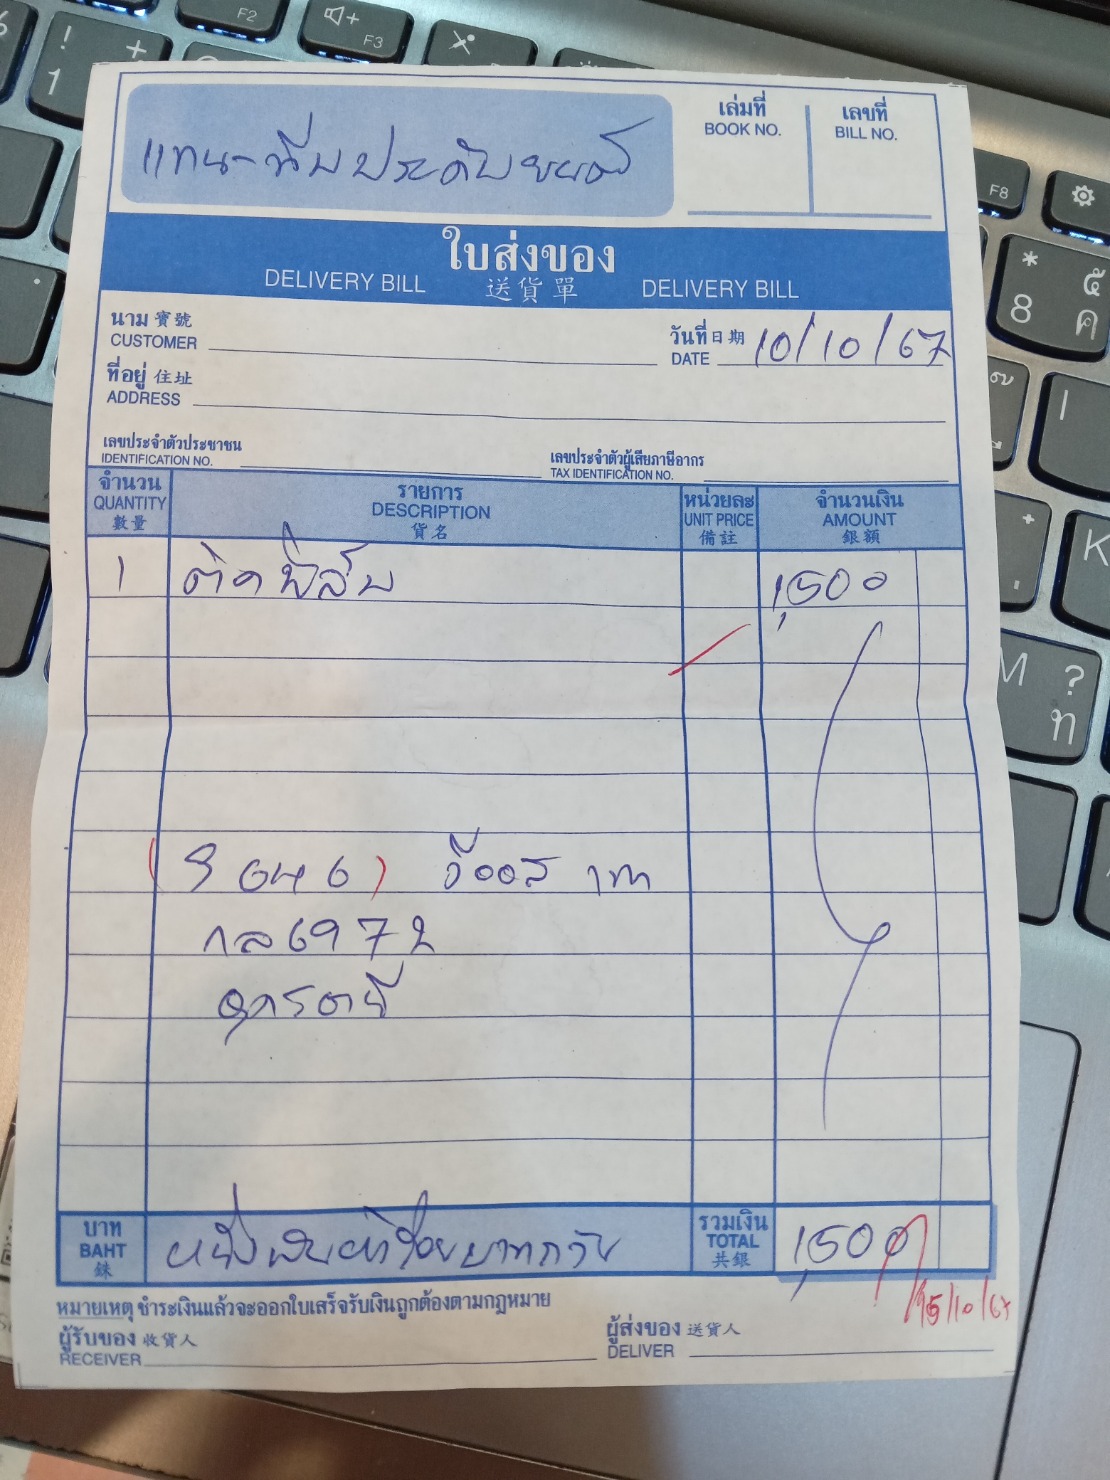 แทน-ทีมประดับยนต์
เล่มที่
BOOK NO.
เลขที่
BILL NO.
ใบส่งของ
DELIVERY BILL 送貨單 DELIVERY BILL
นาม 寶號
CUSTOMER
วันที่ 日期
DATE 10/10/67
ที่อยู่ 住址
ADDRESS
เลขประจำตัวประชาชน
IDENTIFICATION NO.
เลขประจำตัวผู้เสียภาษีอากร
TAX IDENTIFICATION NO.
จำนวน
QUANTITY
數量
รายการ
DESCRIPTION
貨名
หน่วยละ
UNIT PRICE
備註
จำนวนเงิน
AMOUNT
銀額
1 ติดฟิล์ม 1,500
6972
บาท
BAHT
銖
หนึ่งพันห้าร้อยบาทถ้วน
รวมเงิน
TOTAL
共銀
1,500
15/10/67
หมายเหตุ ชำระเงินแล้วจะออกใบเสร็จรับเงินถูกต้องตามกฎหมาย
ผู้รับของ 收貨人
RECEIVER
ผู้ส่งของ 送貨人
DELIVER
F2
F3
F8
! 1 +
* 8 ๕ ค
K
M ? ท